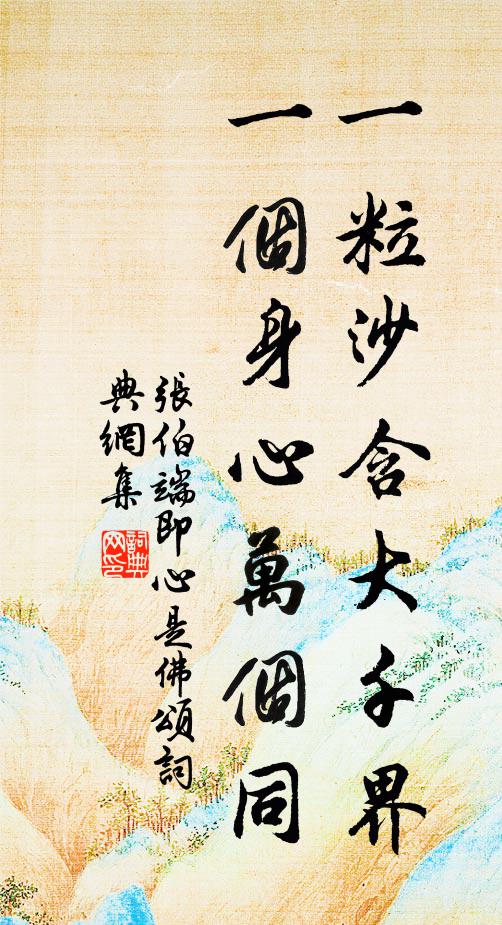 一粒沙含大千界
一個身心萬個同
張伯端即心是佛頌詞
典網集
詞典
网印